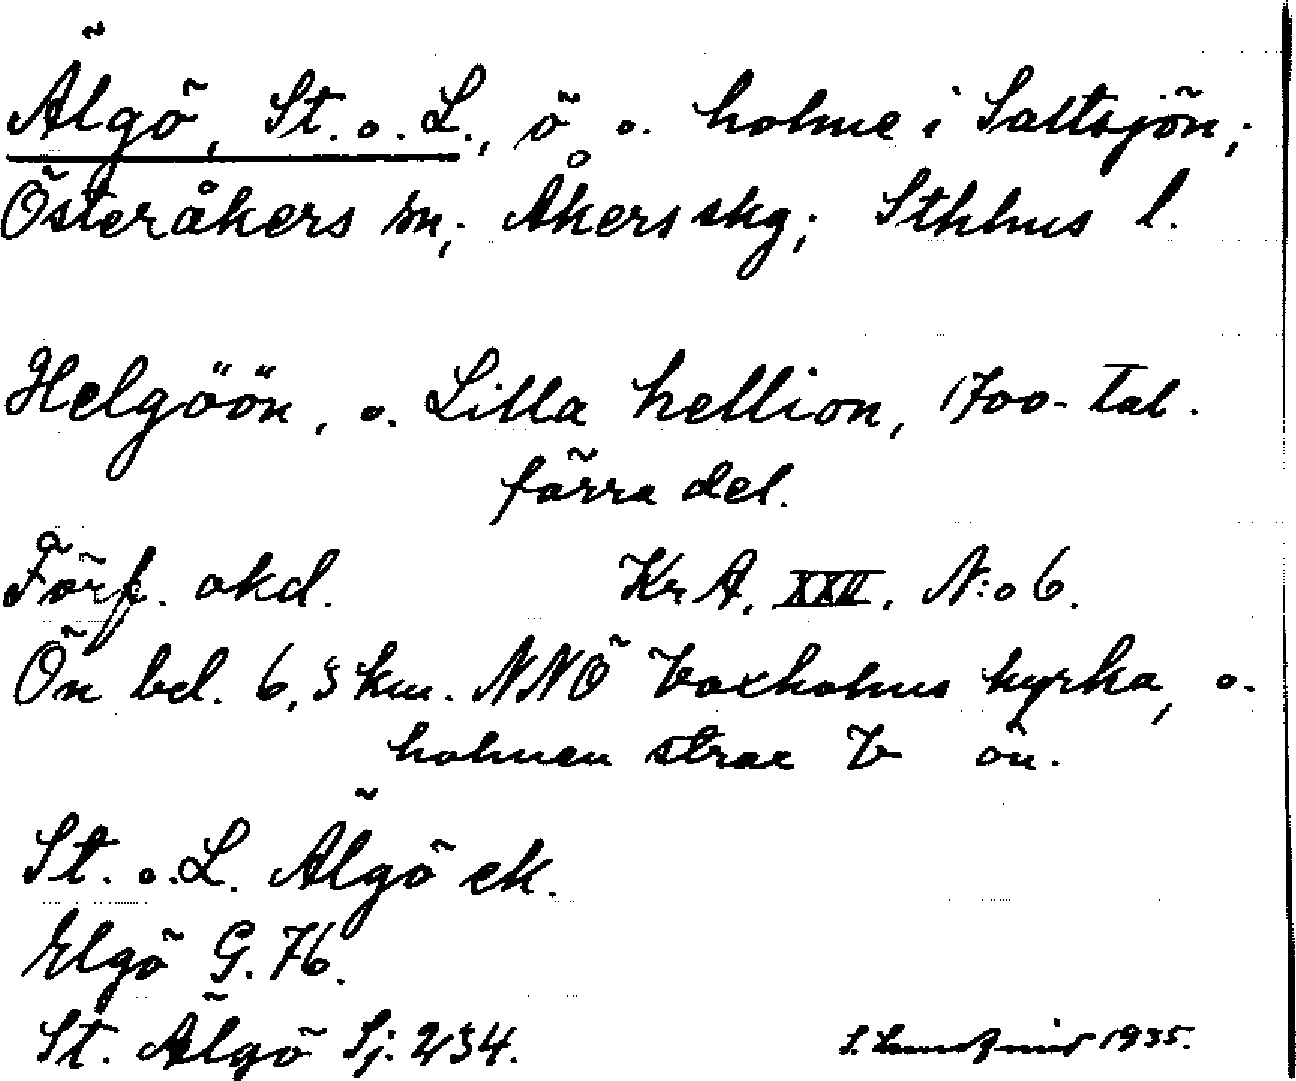 Älgö, St. o. L., ö o. holme i Saltsjön;
Österåkers sn; Åkers skg; Sthlms l.
Helgöön, o. Lilla hellion, 1700-tal.
förra del.
Förf. okd. Kr A. XXII. N:o 6.
Ön bel. 6,5 km. NNÖ Vaxholms kyrka, o.
holmen strax V ön.
St. o. L. Älgö ek.
Elgö G. 76.
St. Älgö Sj. 234.
S. 1935.